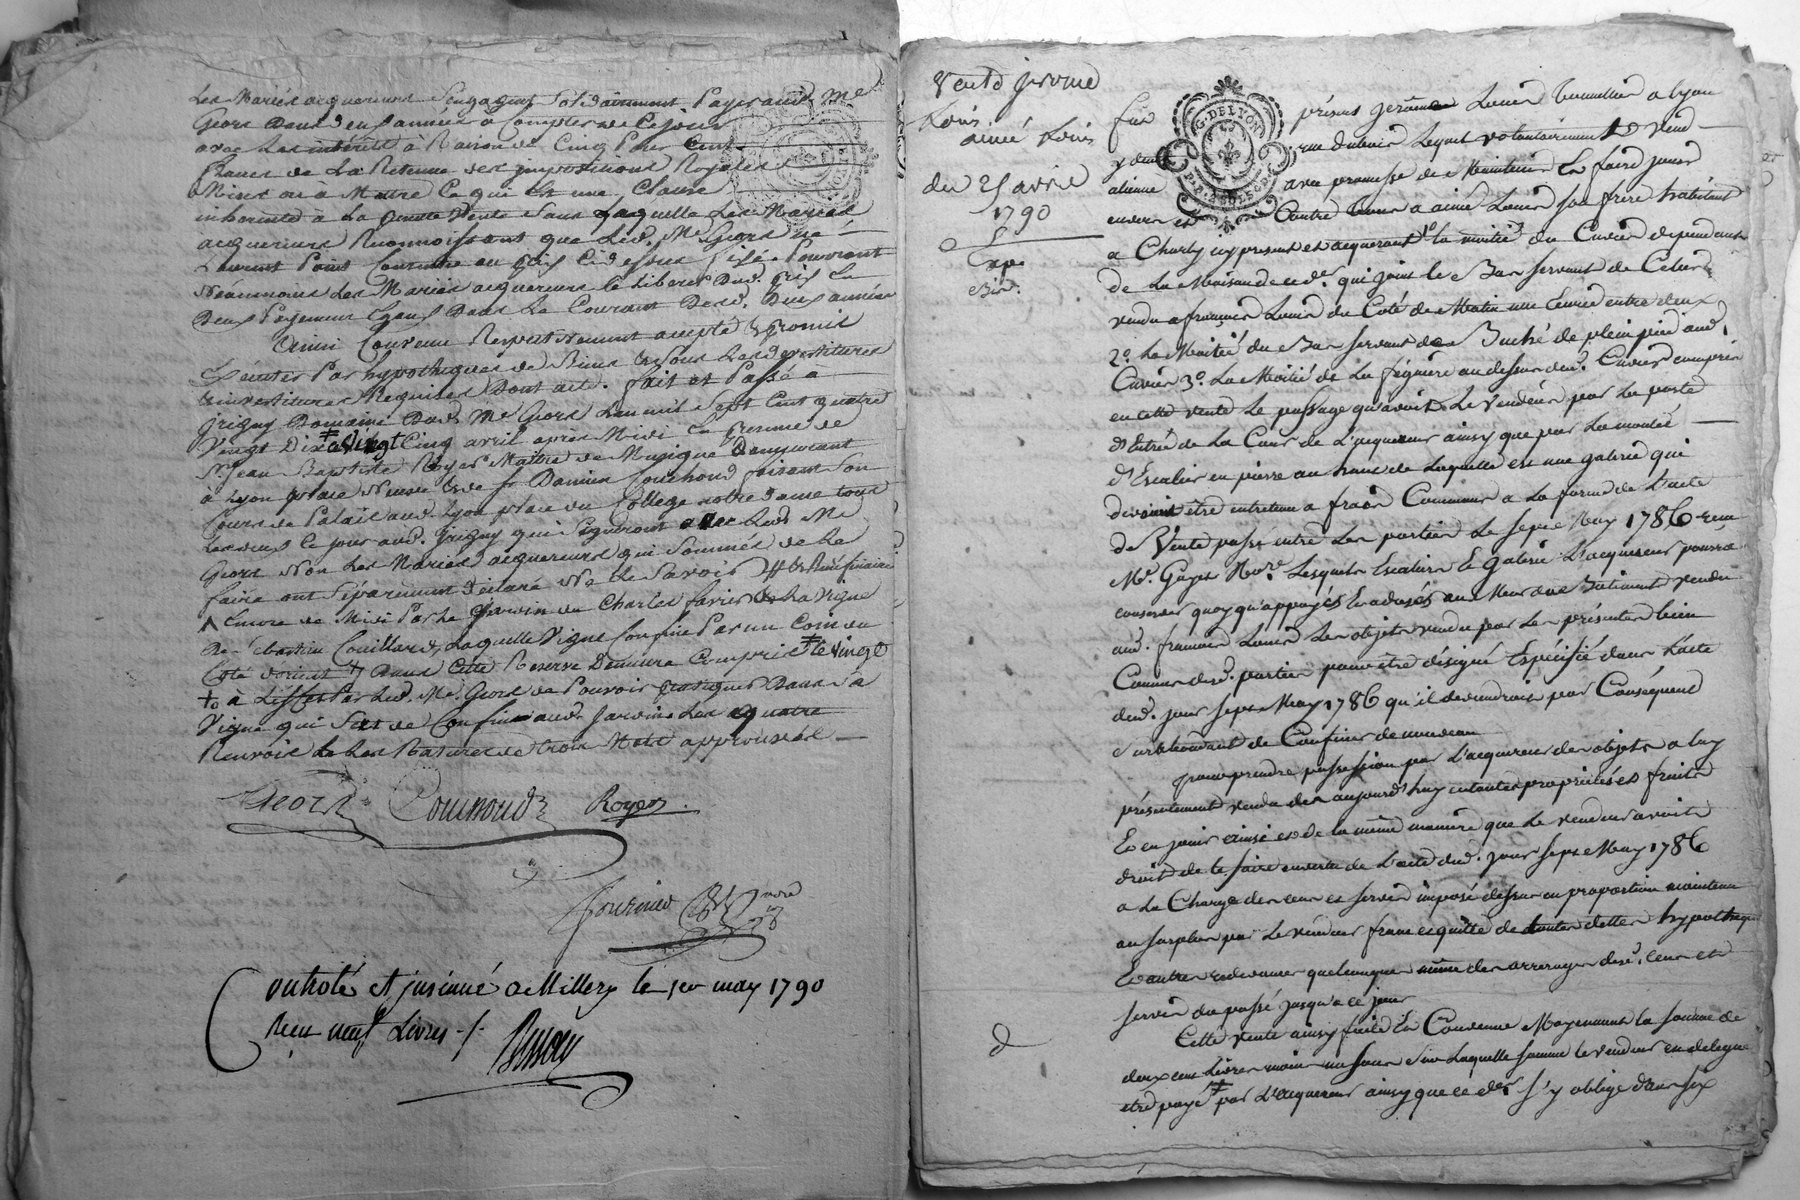 Les Mariés acquereurs Sengagent Solidairement Payer aud. Me
Geors Dans de années a Compter de Ce Jour
avec Les interets a Raison de Cinq Pour Cent
francs de La Retenue des impositions Royales
Mises ou a Mettre Ce qui Est une Clause
inherente a La presente Vente Sans Laquelle Les Mariés
acquereurs Reconnoissent que Led. Me Geors ne
Pouvant
Néanmoins Les Mariés acquereurs Se liberer Dud. Prix En
Deux Payemens Egaux Dans Le Courant Desd. Deux années
Ainsi Convenu Respectivement accepté & Promis
Executer Par hypotheques de Biens & Sous Les devestitures
& investitures Requises Dont acte. fait et Passé a
Grigny Domaine Dud. Me Geors L'an mil Sept Cent quatre
Vingt Dix Le Vingt Cinq avril après Midi En Presence de
Sr. Jean Baptiste Royer Maitre de Musique Demeurant
a Lyon place Neuve & de Sr Damien Couchoud faisant Son
Cours de Palais aud. Lyon place du College notre dame tous
Les deux Ce jour aud. Grigny qui Signeront avec Led. Me
Geors Non Les Mariés acquereurs qui Sommés de Le
faire ont Séparément Declaré Ne Le Savoir
Encore de Midi Par Le Jardin de Charles favier La Vigne
de Couillard, Laquelle Vigne Confine Par un Coin du
Coté d'orient Dans Cette Reserve Demeure Compris Le Vingt
Par Led. Me. Geors de Pouvoir Dans Sa
Vigne qui Sert de Confins aud. Jardin Les quatre
Renvois & Les Ratures de trois Mots approuvés
Geors Couchoud Royer
fournier nore
Controlé et insinué a Millery le 1er may 1790
Reçu neuf Livres
Vente jerome
Louis
aimé Louis
du 25 avril
1790
Exp.
fut présent jerome Louis Tonnellier a Lyon
rue Dubois Lequel volontairement vend
avec promesse de Maintenir Et faire jouir
aimé Louis son frere habitant
a Charly icy present et acquerant 1o la moitié du Cuvier dependant
de La Maison de ced. qui joint le Bas servant de Celier
vendu a françois Louis du Coté de Matin une Cuvée entre deux
2o La Moitié du Bas servant de Buché de plein pied aud.
Cuvier 3o La Moitié de La feignere au dessus dud. Cuvier compris
en cette vente Le passage qu'avoit Le Vendeur par La porte
d'Entrée de La Cour de L'acquereur ainsy que par La montée
d'Escalier en pierre au haut de Laquelle est une galerie qui
devoient être entretenu a frais Communs a La forme de L'acte
de Vente passé entre Les parties Le sept May 1786 reçu
Me. Gayet Nore. Lesquels Escaliers Et galerie L'acquereur pourra
conserver quoy qu'appuyés Et adossés au Mur du Batiment vendu
aud. françois Louis Les objets vendu par Les présentes bien
Connus desd. parties pour être désigné Espécifié dans L'acte
dud. jour sept May 1786 qu'il deviendroit par Conséquent
surabondant de Confiner de nouveau
Pour prendre possession par L'acquereur des objets a luy
présentement vendu des aujourd'huy en toutes propriétés et fruits
Et en jouir ainsi et de la même manière que Le vendeur avoit
droit de le faire en vertu de L'acte dud. jour sept May 1786
a La Charge des cens et servis imposé dessus en proportion maintenu
au surplus par Le vendeur franc et quitte de toutes dettes hypotheques
Et autres redevances quelconques même des arrerages desd. cens et
servis du passé jusqu'a ce jour
Cette vente ainsy faite Et Convenue Moyennant la somme de
deux cent Livres moins un sous Sur Laquelle somme le vendeur en delegue
etre payé par L'acquereur ainsy que ced. s'y oblige dans six
G. DE LYON